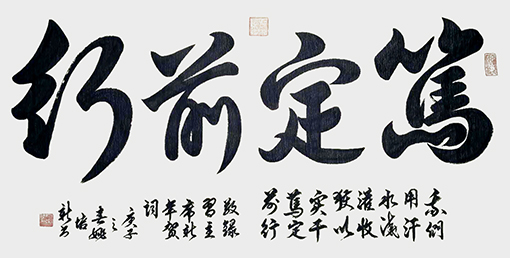 篤定前行
我們
用汗
水澆
灌收
獲以
實干
篤定
前行
敬錄
習主
席新
年賀
詞
庚子
之
春姚
培
新